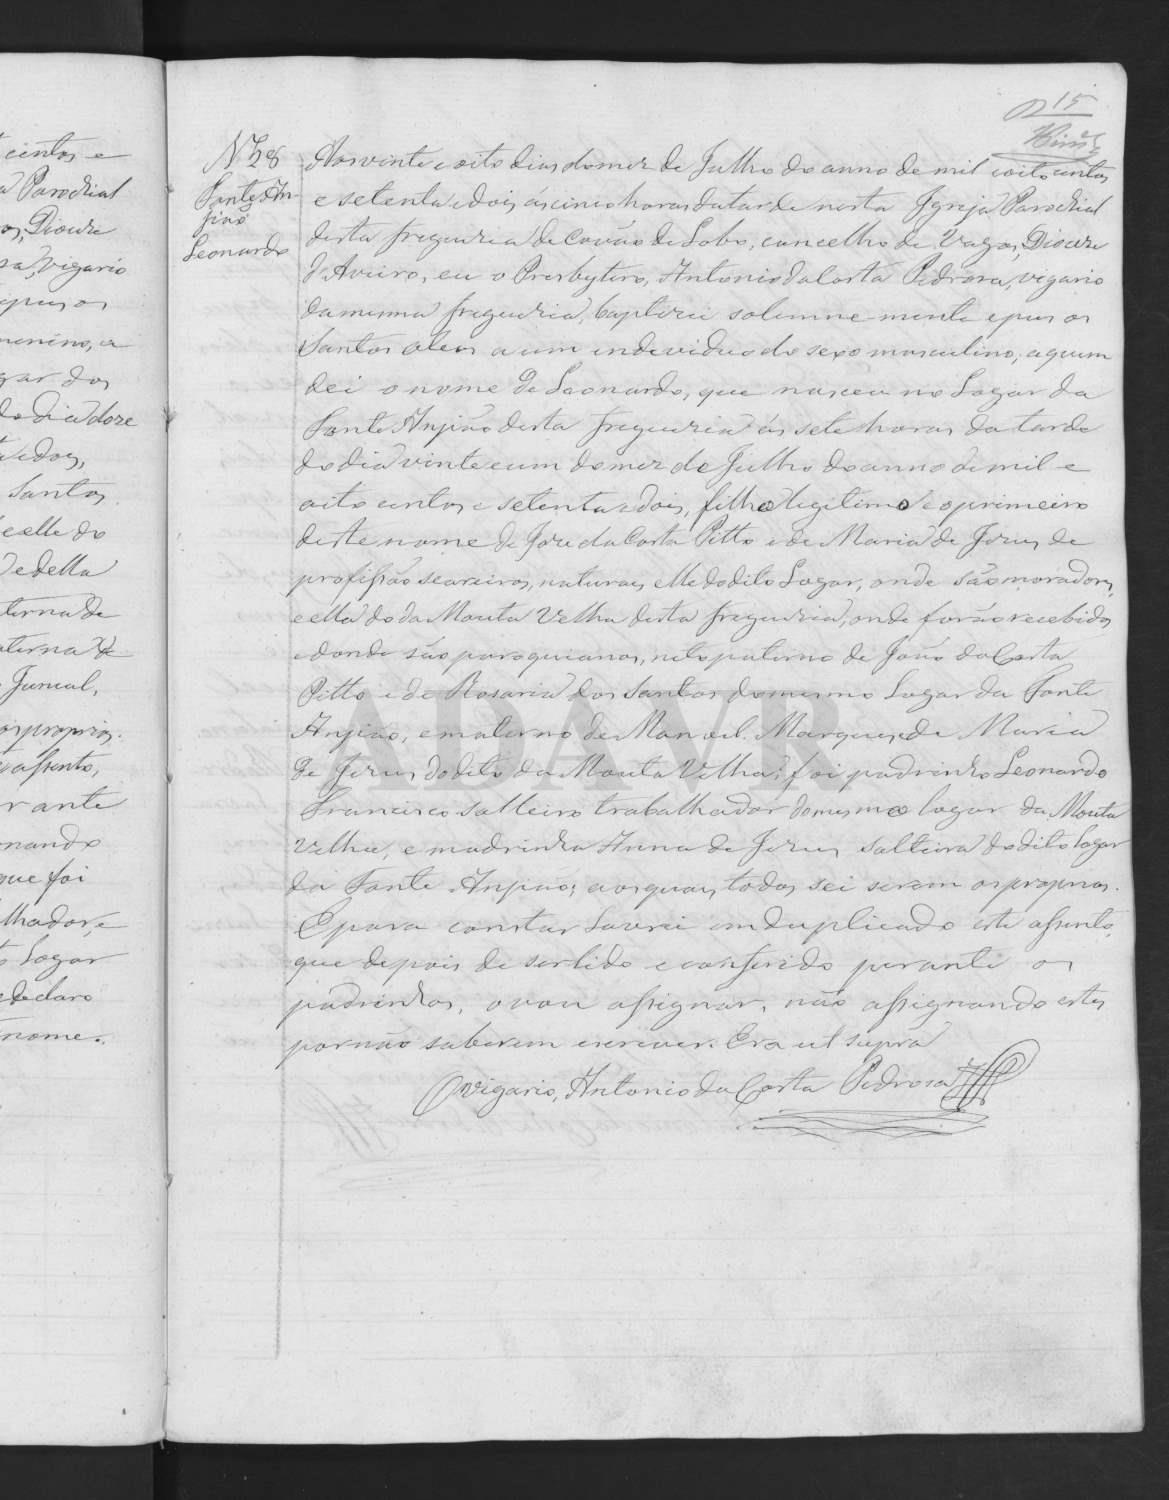 15
Nº 28
Fonte An-
jião
Leonardo
Aos vinte e oito dias do mez de Julho do anno de mil e oito centos
e setenta e dois ás cinco horas da tarde nesta Igreja Parochial
desta freguezia de Covão do Lobo, concelho de Vagos, Diocese
d'Aveiro, eu o Presbytero, Antonio da Costa Pedrosa, vigario
da mesma freguezia, baptizei solemne-mente e puz os
Santos oleos a um individuo do sexo masculino, a quem
dei o nome de Leonardo, que nasceu no Logar da
Fonte Anjião desta freguezia ás sete horas da tarde
do dia vinte e um do mez de Julho do anno de mil e
oito centos e setenta e dois, filho legitimo e o primeiro
deste nome de Joze da Costa Pitto e de Maria de Jezus de
profissão seareiros, naturaes elle do dito Logar, onde são moradores,
e ella do da Mouta Velha desta freguezia, onde forão recebidos
e donde são paroquianos, neto paterno de João da Costa
Pitto e de Rosaria dos Santos do mesmo Logar da Fonte
Anjião, e materno de Manoel Marques e de Maria
de Jezus do dito da Mouta Velha; foi padrinho Leonardo
Francisco solteiro trabalhador do mesmo logar da Mouta
Velha, e madrinha Anna de Jezus solteira do dito logar
da Fonte Anjião; aos quaes todos sei serem os proprios.
E para constar lavrei em duplicado este assento,
que depois de ser lido e conferido perante os
padrinhos, o vou assignar, não assignando estes
por não saberem escrever. Era ut supra
O vigario, Antonio da Costa Pedrosa
ADAVR
centos e
Parochial
Diocese
vigario
e puz os
menino, a
gar dos
do dia doze
e dois,
Santos
elle do
e della
terna de
aterna de
Juncal,
os proprios.
assento,
rante
nando
que foi
lhador, e
Logar
declaro
nome.